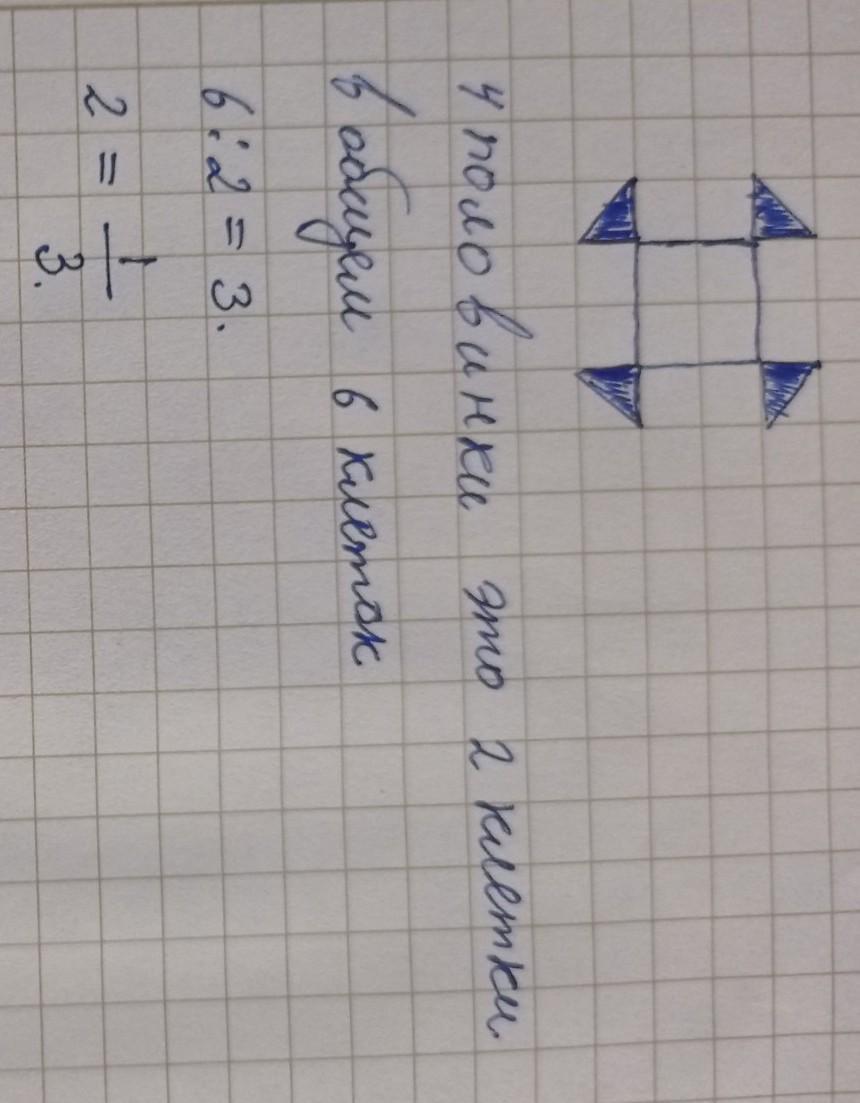 4 половинки это 2 клетки.
В общем 6 клеток
6 : 2 = 3.
2 = 1/3.